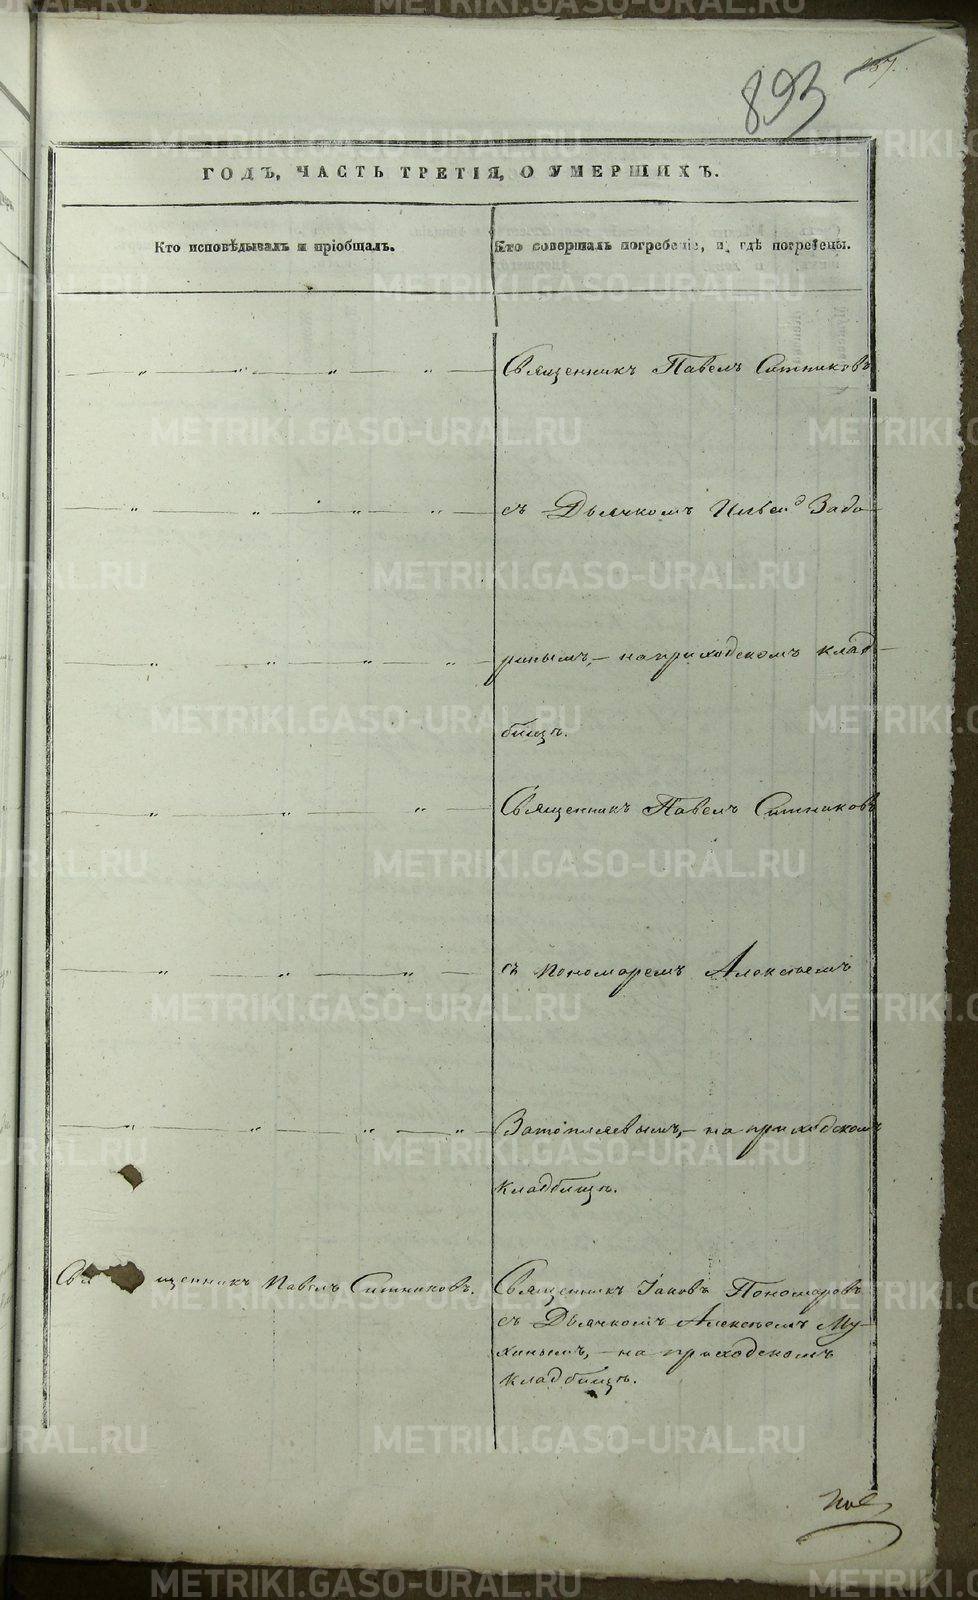 137.
893
ГОДЪ, ЧАСТЬ ТРЕТІЯ, О УМЕРШИХЪ.
Кто исповѣдывалъ и пріобщалъ.
Кто совершалъ погребеніе, и гдѣ погребены.
— „ — „ — „ — „ — Священникъ Павелъ Ситниковъ
— „ — „ — „ — „ — съ Дьячкомъ Ильей Задо-
— „ — „ — „ — „ — ринымъ, – на приходскомъ клад-
бищѣ.
— „ — „ — „ — Священникъ Павелъ Ситниковъ
— „ — „ — „ — съ Пономаремъ Алексѣемъ
— „ — „ — „ — „ — Затопляевымъ, – на приходскомъ
кладбищѣ.
Священникъ Павелъ Ситниковъ.
Священникъ Іаковъ Пономаровъ
съ Дьячкомъ Алексѣемъ Му-
хинымъ, – на приходскомъ
кладбищѣ.
METRIKI.GASO-URAL.RU